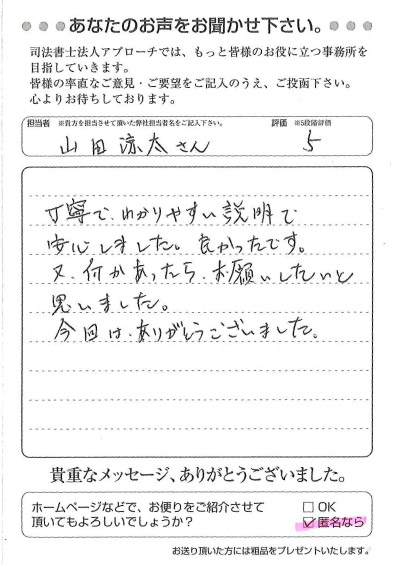 あなたのお声をお聞かせ下さい。
司法書士法人アプローチでは、もっと皆様のお役に立つ事務所を
目指していきます。
皆様の率直なご意見・ご要望をご記入のうえ、ご投函下さい。
心よりお待ちしております。
担当者 ※貴方を担当させて頂いた弊社担当者名をご記入下さい。 評価 ※5段階評価
山田涼太さん 5
丁寧で、わかりやすい説明で
安心しました。良かったです。
又、何かあったら、お願いしたいと
思いました。
今回は、ありがとうございました。
貴重なメッセージ、ありがとうございました。
ホームページなどで、お便りをご紹介させて
頂いてもよろしいでしょうか?
□ OK
☑ 匿名なら
お送り頂いた方には粗品をプレゼントいたします。